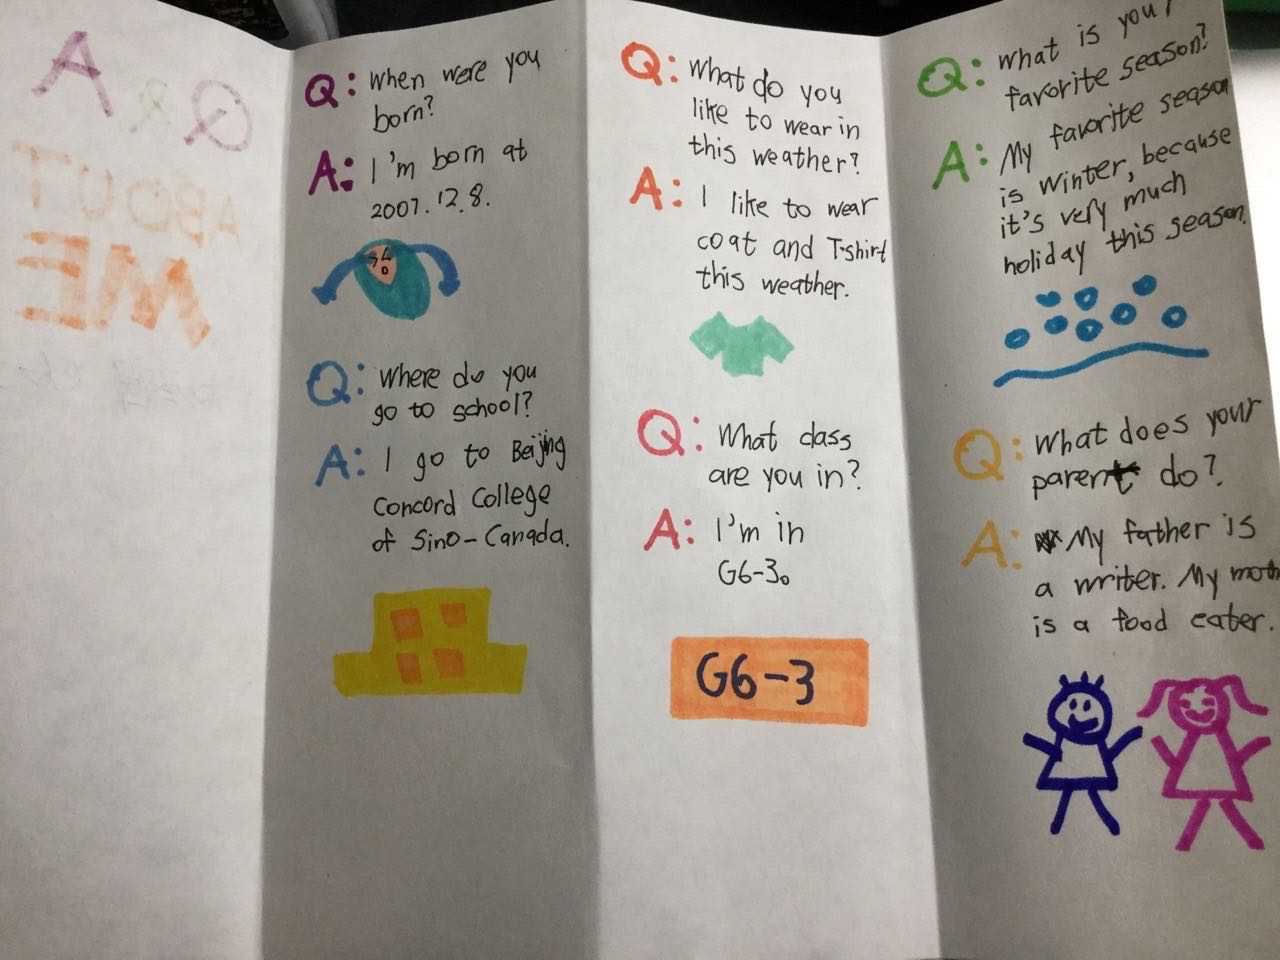 Q & A
ABOUT
ME
Q: When were you
born?
A: I'm born at
2007.12.8.
Q: Where do you
go to school?
A: I go to Beijing
Concord College
of Sino-Canada.
Q: What do you
like to wear in
this weather?
A: I like to wear
coat and T-shirt
this weather.
Q: What class
are you in?
A: I'm in
G6-3。
G6-3
Q: What is your
favorite season?
A: My favorite season
is winter, because
it's very much
holiday this season.
Q: What does your
parent do?
A: My father is
a writer. My moth
is a food eater.